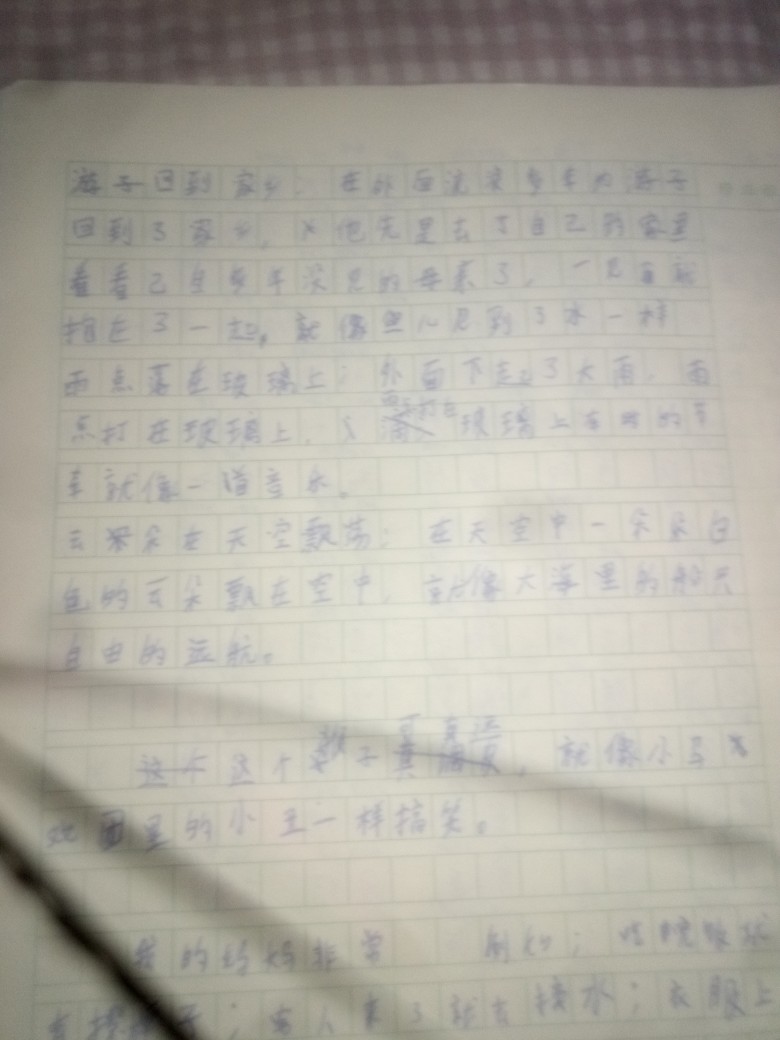 游子回到家乡：在外面流浪多年的游子
回到了家乡，他先是去了自己的家里
看看己多年没见的母亲了，一见面就
抱在了一起，就像鱼儿见到了水一样
雨点落在玻璃上：外面下起了大雨，雨
点打在玻璃上，雨打在玻璃上
就像一道音乐。
云朵在天空飘荡：在天空中一朵朵白
色的云朵飘在空中，就像大海里的船只
自由的远航。
这个猴子真，就像小马
戏团里的小丑一样搞笑。
我的妈妈非常
有人来了就去接水；衣服上